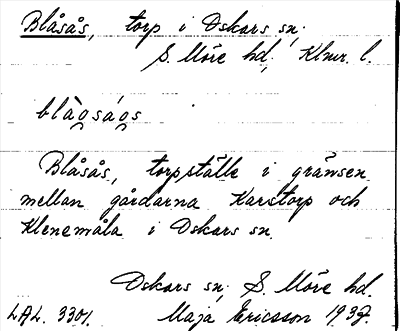 Blåsås, torp i Oskars sn,
S. Möre hd, Klmr. l.
blågsågs
Blåsås, torpställe i gränsen
mellan gårdarna Karstorp och
Klenemåla i Oskars sn.
Oskars sn, S. Möre hd.
LAL. 3301. Maja Ericsson 1937.